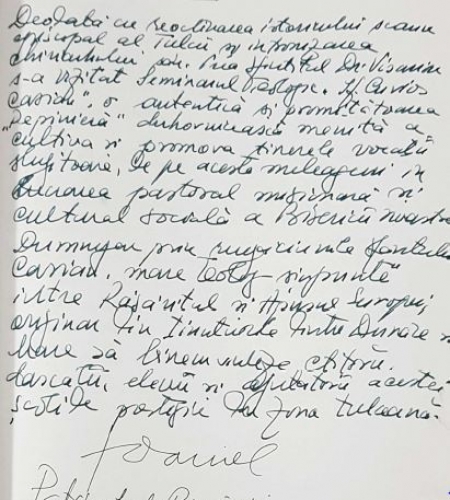 Deodată cu reactivarea istoricului scaun
episcopal al Tulcii și intronizarea
chiriarhului său, Prea Sfințitul Dr. Visarion
s-a vizitat Seminarul Teologic "Sf. Cuvios
Casian", o autentică și promițătoarea
"Pepinieră" duhovnicească menită a
cultiva și promova tinerele vocații
slujitoare, de pe aceste meleaguri în
lucrarea pastoral misionară și
cultural socială a Bisericii noastre
Dumnezeu prin rugăciunile Sfântului
Casian, mare teolog "sinpunte"
între Răsăritul și Apusul Europei,
originar din Ținuturile dintre Dunăre și
Mare să binecuvinteze ctitorii,
dascălii, elevii și ajutătorii acestei
școli de prestigiu din zona tulceană.
Daniel